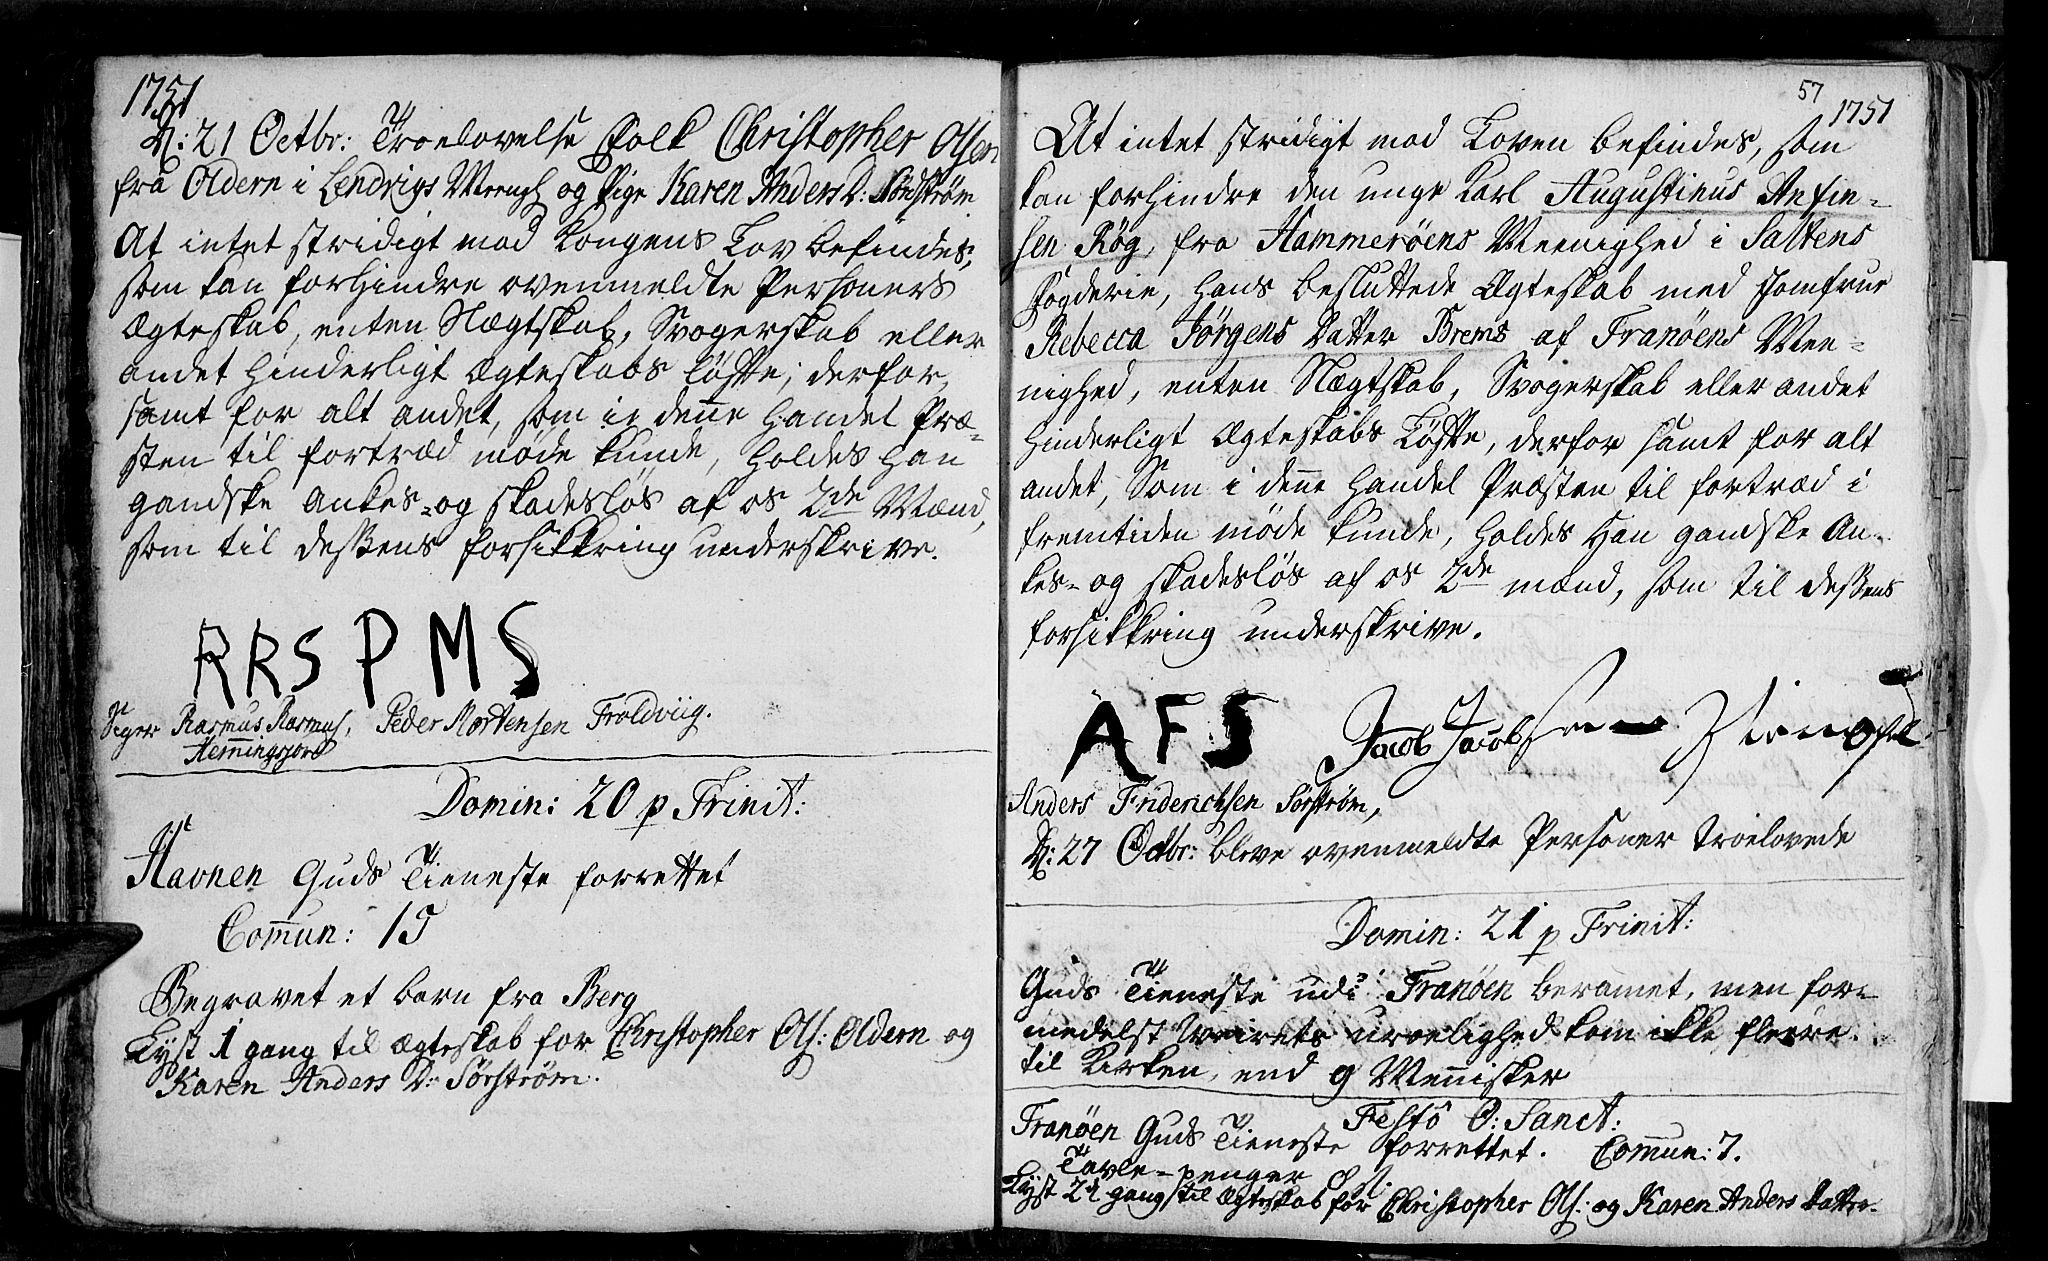 1751
D: 21 Octbr: Troelovelse Folk Christopher Olsen
fra Oldern i Lendvigs Meengh og Pige Karen Anders D:
At intet stridigt mod Kongens Lov befindes,
som kan forhindre ovenmeldte Personers
Ægteskab, enten Nægtskab, Svogerskab eller
andet hinderligt Ægteskabs løfte; derfor,
samt for alt andet, som i denne Handel Præ-
sten til fortræd møde kunde, holdes han
gandske ankes- og skadesløs af os 2de Mænd,
som til dessens forsikkring underskrive.
RRS PMS
Rasmus Rasmus, Peder Mortensen Troldviig.
Hemmingsjord
Domin: 20 p Trinit:
Havnen Guds Tieneste forrettet
Commun: 15
Begravet et barn fra Berg
Lyst 1 gang til Ægteskab for Christopher Ols: Oldern og
Karen Anders D: Sørstrøm.
57
1751
At intet stridigt mod Loven befindes, som
kan forhindre den unge Karl Augustinus Anfin-
sen Røg, fra Hammerøens Meenighed i Saltens
Fogderie, hans besluttede Ægteskab med Jomfrue
Rebecca Jørgens Datter Brems af Tranøens Mee-
nighed, enten Nægtskab, Svogerskab eller andet
hinderligt Ægteskabs Løfte, derfor samt for alt
andet, Som i denne Handel Præsten til fortræd i
fremtiden møde kunde, holdes Han gandske An-
kes- og skadesløs af os 2de mænd, som til dessens
forsikkring underskrive.
AFS Jacob Jacobsen
Anders Friderichsen Sørstrøm,
D: 27 Octbr: bleve ovenmeldte Personer troelovede
Domin: 21 p Trinit:
Guds Tieneste udi Tranøen beramet, men for-
medelst Veirets uroelighed kom ikke fleere
til Kirken, end 9 Mennisker
Festô O: Sanct:
Tranøen Guds Tieneste forrettet. Commun: 7.
Tavle-penger
Lyst 2d gang til Ægteskab for Christopher Ols: og Karen Anders Datter.